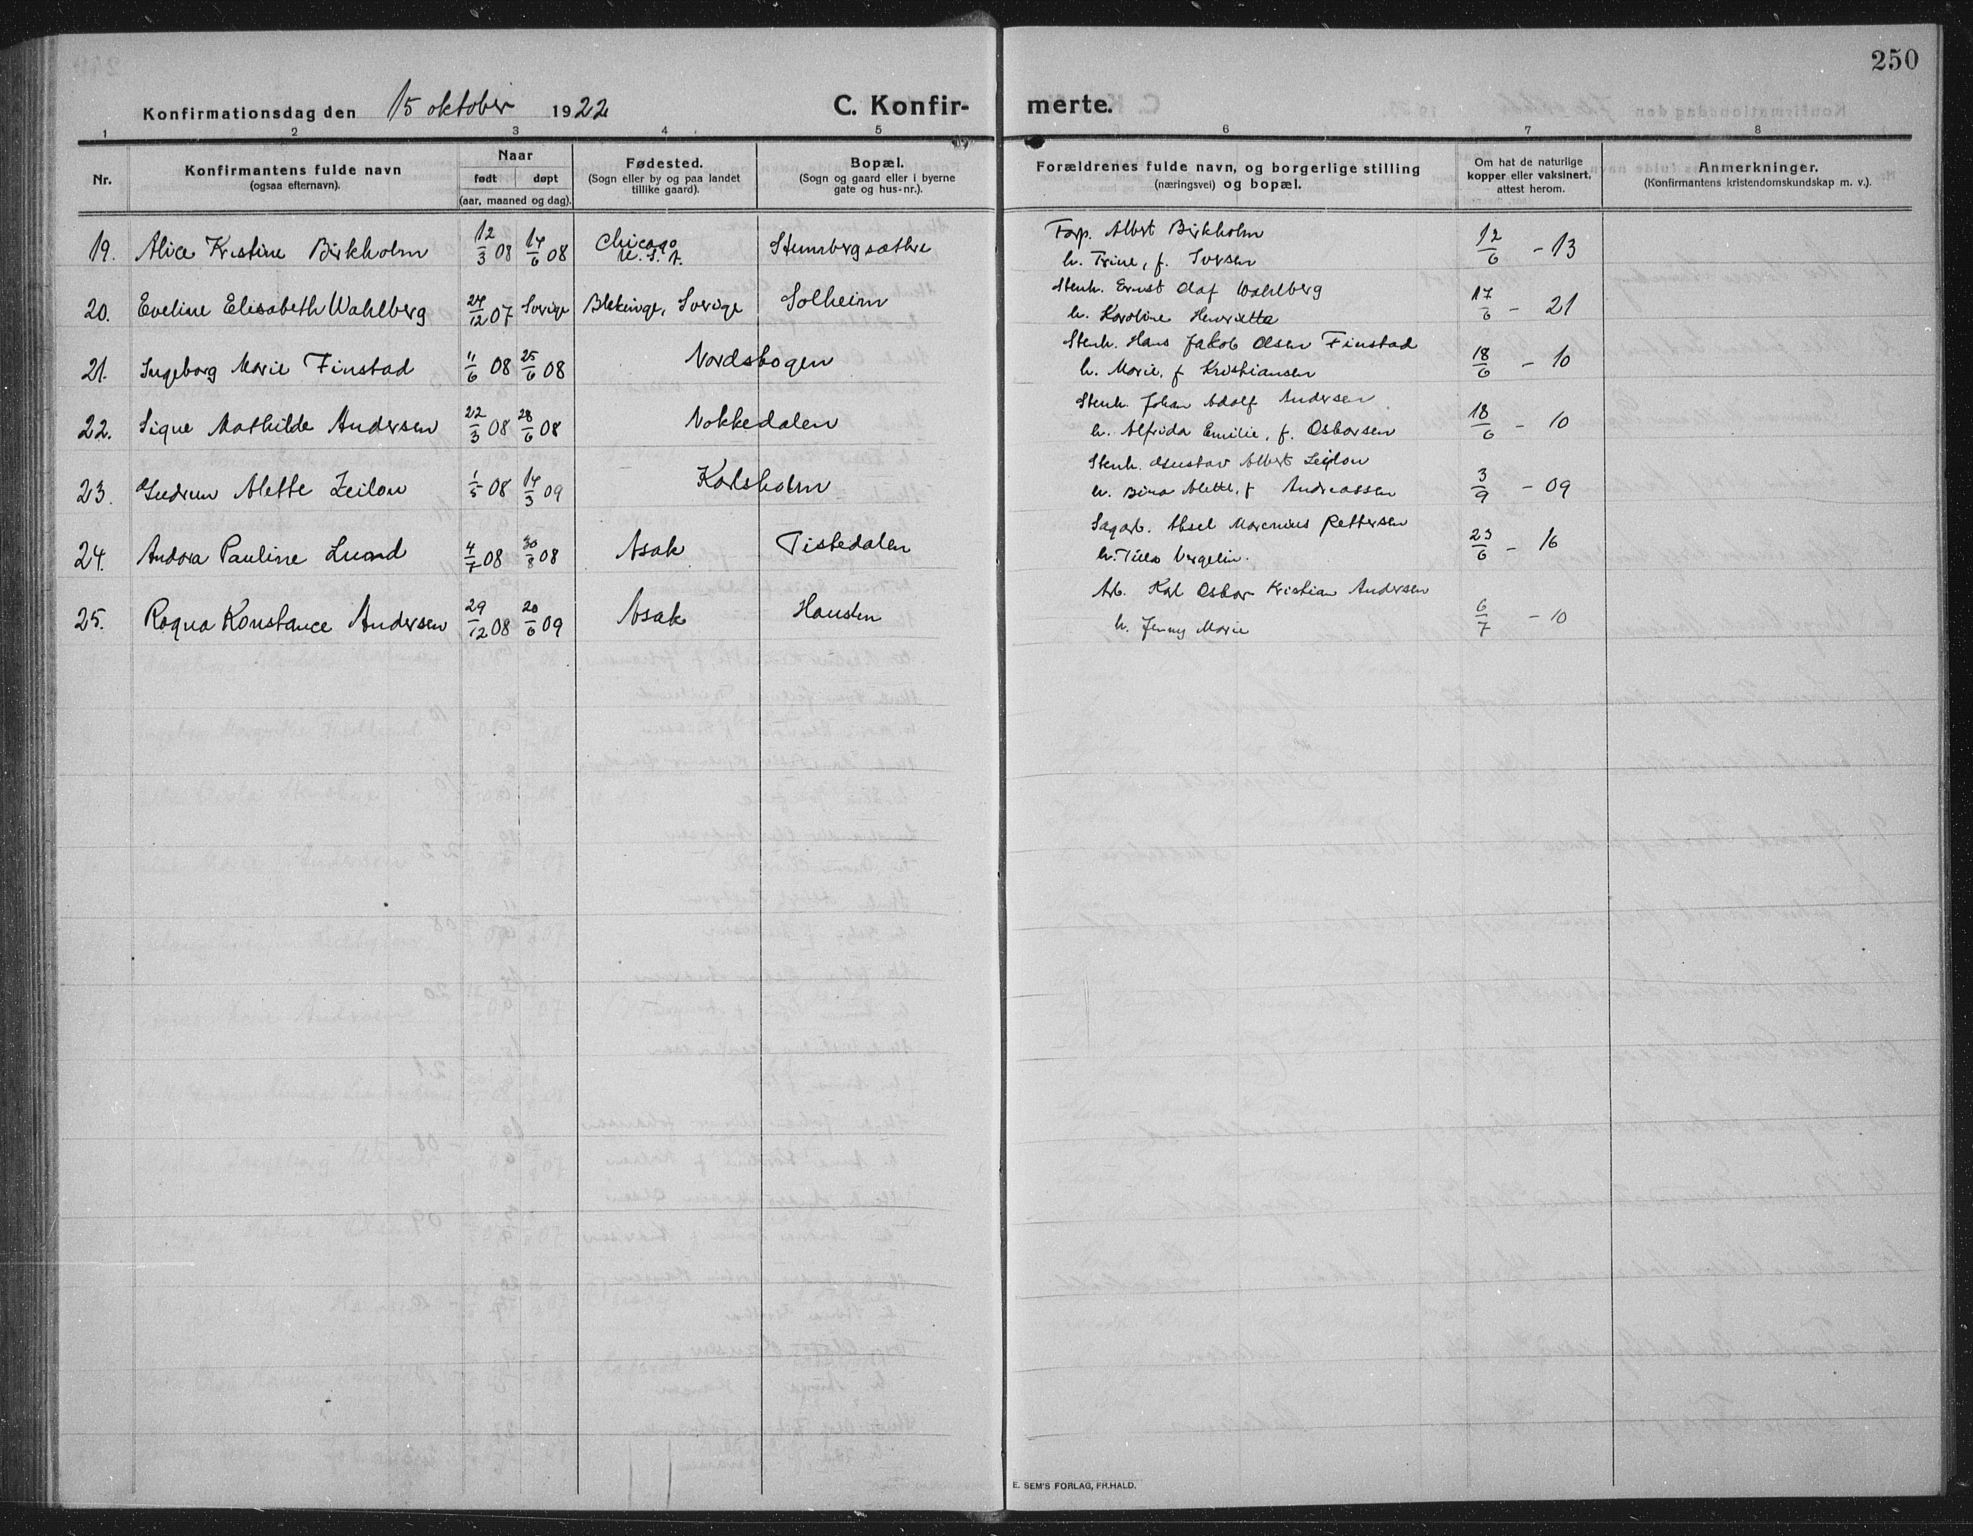 250
Konfirmationsdag den 15 oktober 1922
C. Konfir-
merte.
1 2 3 4 5 6 7 8
Nr.
Konfirmantens fulde navn
(ogsaa efternavn).
Naar
født døpt
(aar, maaned og dag).
Fødested.
(Sogn eller by og paa landet
tillike gaard).
Bopæl.
(Sogn og gaard eller i byerne
gate og hus-nr.).
Forældrenes fulde navn, og borgerlige stilling
(næringsvei) og bopæl.
Om hat de naturlige
kopper eller vaksinert,
attest herom.
Anmerkninger.
(Konfirmantens kristendomskundskap m. v.).
19. Alice Kristine Birkholm 12/3 08 14/6 08 Chicago U. S. A. Stensbergsæthre Forp. Albert Birkholm
h. Trine, f. Iversen 12/6 - 13
20. Eveline Elisabeth Wahlberg 24/12 07 Sverige Blekinge, Sverige Solheim Stenh. Ernst Olaf Wahlberg
h. Karoline Henriette 17/6 - 21
21. Ingeborg Marie Finstad 11/6 08 25/6 08 Nordskogen Stenh. Hans Jakob Olsen Finstad
h. Marie, f Kristiansen 18/6 - 10
22. Signe Mathilde Andersen 22/3 08 28/6 08 Nokkedalen Stenh. Johan Adolf Andersen
h. Alfrida Emilie, f. Oskarsen 18/6 - 10
23. Gudrun Alette Zeilon 1/5 08 14/3 09 Karlsholm Stenh. Gustav Albert Zeilon
h. Bina Alette, f Andreassen 3/9 - 09
24. Andora Pauline Lund 08 30/8 08 Asak Tistedalen Sagarb. Aksel Marenius Pettersen
h. 23/6 - 16
25. Ragna Konstance Andersen 29/12 08 20/6 09 Asak Hansten Arb. Karl Oskar Kristian Andersen
h. Jenny Marie 6/7 - 10
E. SEM'S FORLAG, FR.HALD.